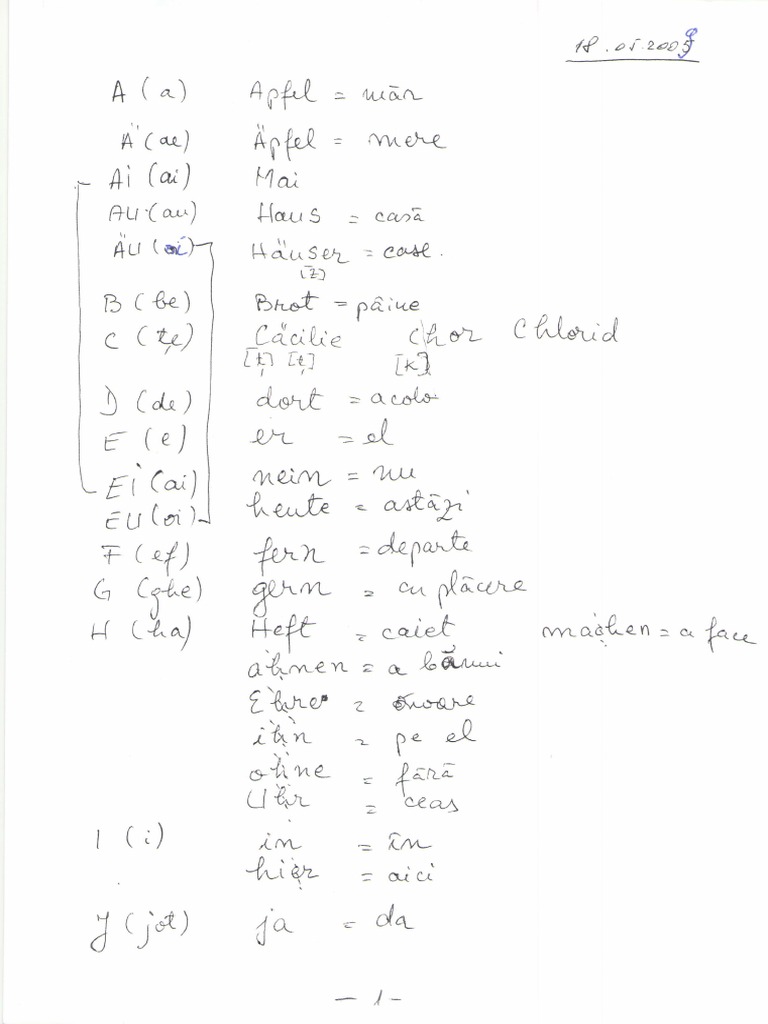 18.05.2009
A (a) Apfel = măr
Ä (ae) Äpfel = mere
Ai (ai) Mai
AU (au) Haus = casă
ÄU (oi) Häuser = case.
[z]
B (be) Brot = pâine
C (țe) Cäcilie Chor Chlorid
[ț] [ț] [k]
D (de) dort = acolo
E (e) er = el
Ei (ai) nein = nu
EU (oi) heute = astăzi
F (ef) fern = departe
G (ghe) gern = cu plăcere
H (ha) Heft = caiet machen = a face
ahnen = a bănui
Ehre = onoare
ihn = pe el
ohne = fără
Uhr = ceas
I (i) in = în
hier = aici
J (jot) ja = da
- 1 -